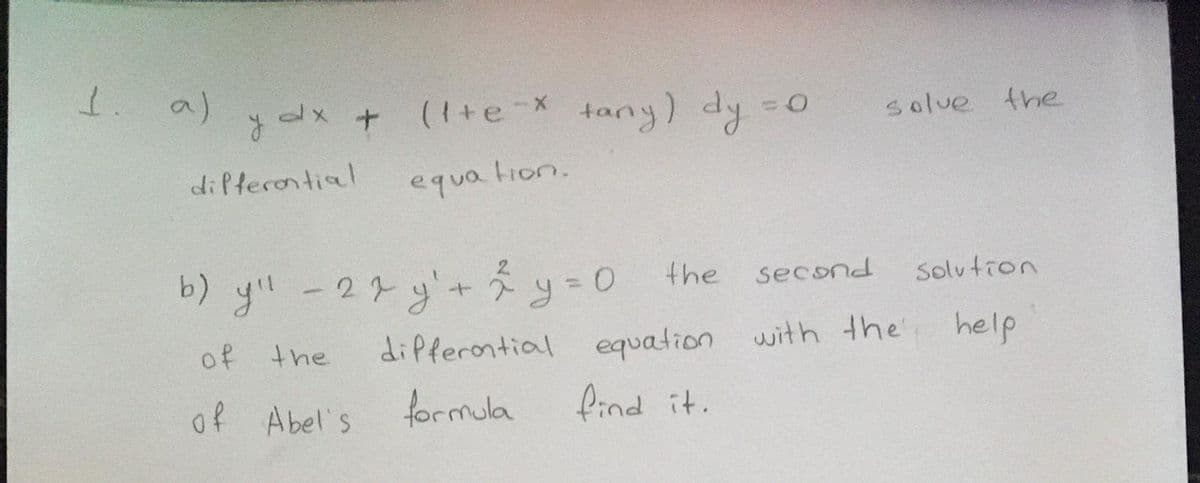 1. a) y dx + (1+e^-x tany) dy = 0 solve the
differential equation.
b) y'' - 2λy' + λ² y = 0 the second solution
of the differential equation with the help
of Abel's formula find it.